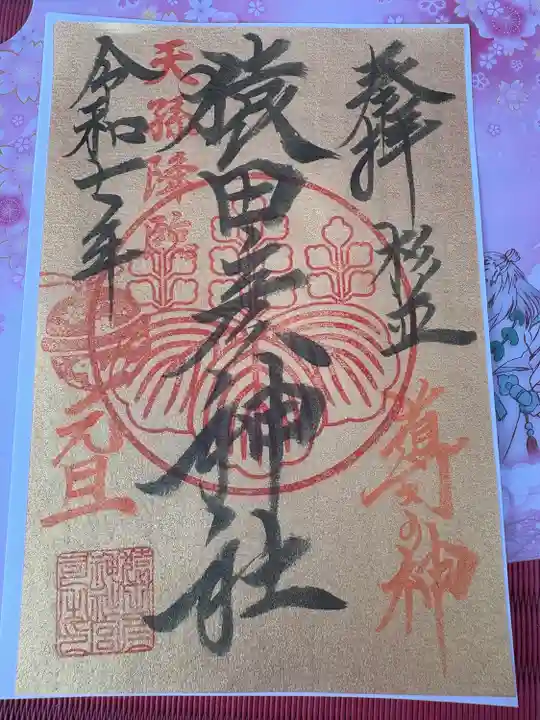 奉拝
杉並
導きの神
猿田彦神社
天孫降臨
令和七年
元旦